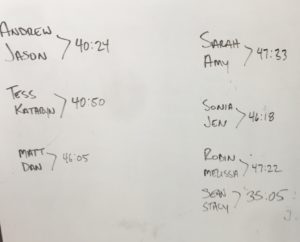 Andrew
Jason 40:24
Tess
Katalin 40:50
Matt
Dan 46:05
Sarah
Amy 47:33
Sonia
Jen 46:18
Robin
Melissa 47:22
Sean
Stacy 35:05